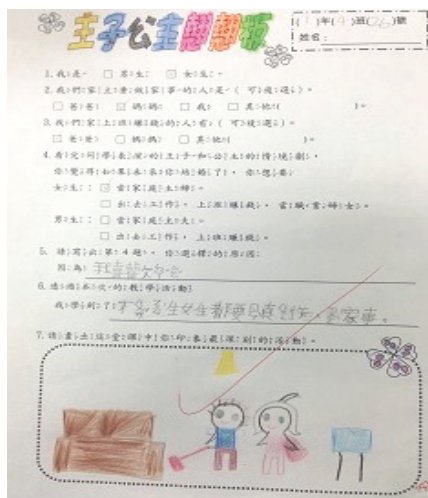 王子公主變變變
( 1 )年( 4 )班(26)號
姓名：
1.我是： □ 男生； ☑ 女生。
2.我們家主要做家事的人是（可複選）。
□ 爸爸； ☑ 媽媽； □ 我； □ 其他( )。
3.我們家上班賺錢的人有（可複選）。
☑ 爸爸； □ 媽媽； □ 其他( )。
4.看完同學表演的王子和公主的情境劇，
你覺得如果未來你結婚了，你想要：
女生： ☑ 當家庭主婦。
□ 出去工作，上班賺錢，當職業婦女。
男生： □ 當家庭主夫。
□ 出去工作，上班賺錢。
5. 請寫出第4題，你選擇的原因：
因為：我喜歡
6.透過本次的教學活動
我學到了：不管男生女生都要 家事。
7.請畫出這堂課中你印象最深刻的活動。